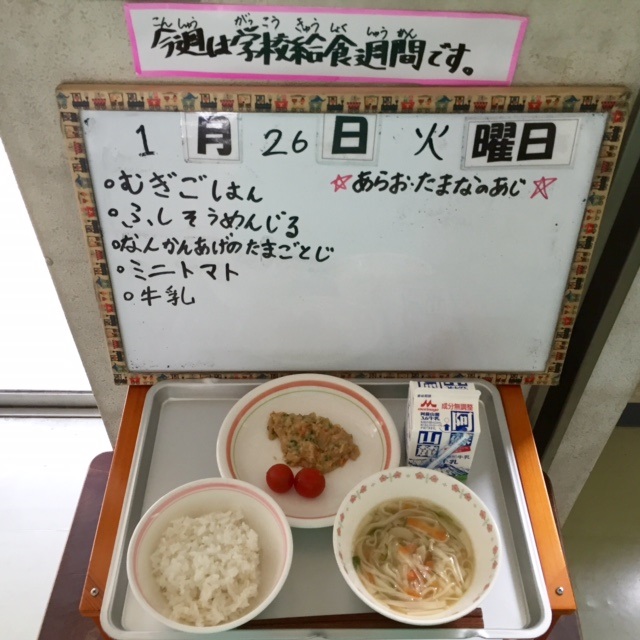 こんしゅう がっこう きゅうしょく しゅうかん
今週は学校給食週間です。
1月26日 火曜日
☆あらお・たまなのあじ☆
○むぎごはん
○ふしそうめんじる
○なんかんあげのたまごとじ
○ミニトマト
○牛乳
成分無調整
阿
山